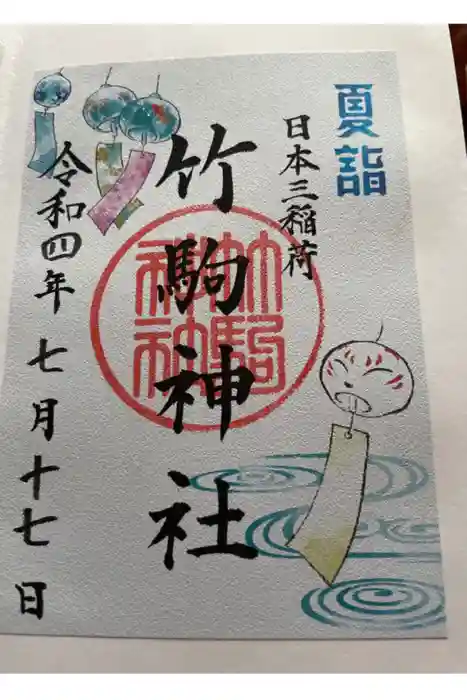 夏詣
日本三稲荷
竹駒神社
竹駒神社
令和四年 七月十七日